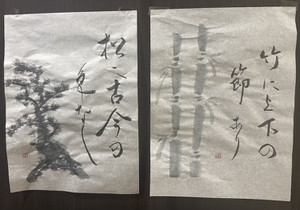 竹に上下の
節あり
松に古今の
色なし